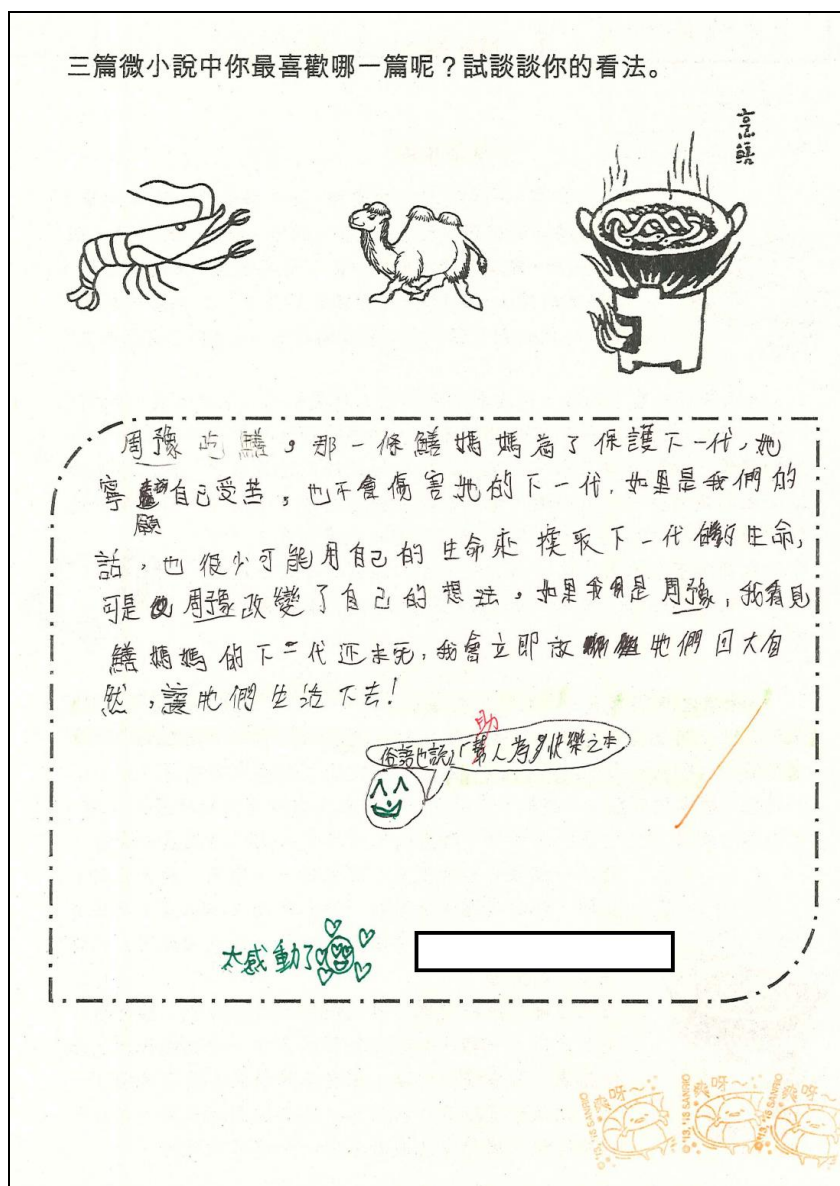 三篇微小說中你最喜歡哪一篇呢？試談談你的看法。
烹鱔
周豫吃鱔，那一條鱔媽媽為了保護下一代，她
寧願自己受苦，也不會傷害她的下一代，如果是我們的
話，也很少可能用自己的生命來換取下一代的生命，
可是周豫改變了自己的想法，如果我是周豫，我看見
鱔媽媽的下一代還未死，我會立即放牠們回大自
然，讓牠們生活下去！
助
俗語也說：「幫人為快樂之本
太感動了
嘩呀～
©'13,'18 SANRIO